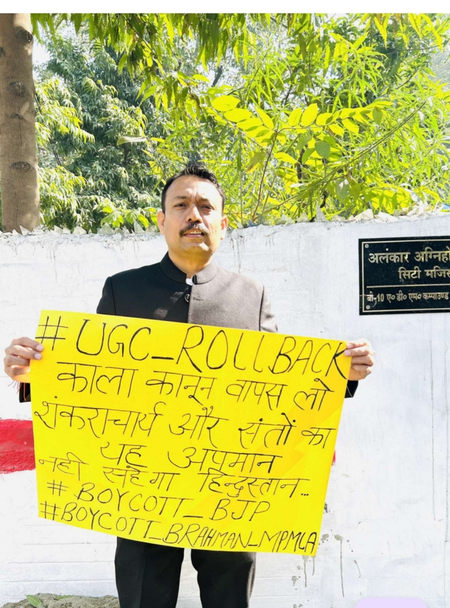 अलंकार अग्निहो
सिटी मजिस
बी-10 ए० डी० एम० कम्पाउण्ड
#UGC_ROLLBACK
काला कानून वापस लो
शंकराचार्य और संतों का
यह अपमान
नहीं सहेगा हिन्दुस्तान...
# BOYCOTT_BJP
#BOYCOTT_BRAHMAN_MPMLA